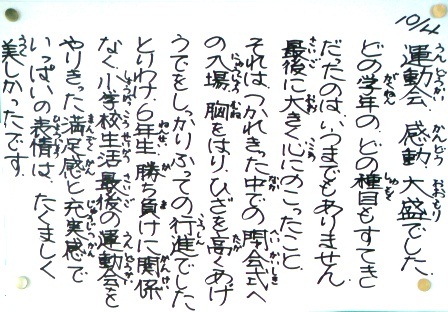 10/4
運動会、感動、大盛でした。
どの学年の、どの種目もすてき
だったのは、いつまでもありません。
最後に大きく心にのこったこと、
それは、つかれきった中での閉会式へ
の入場、胸をはり、ひざを高くあげ
うでをしっかりふっての行進でした
とりわけ、6年生、勝ち負けに関係
なく、小学校生活最後の運動会を
やりきった、満足感と充実感で
いっぱいの表情は、たくましく
美しかったです。